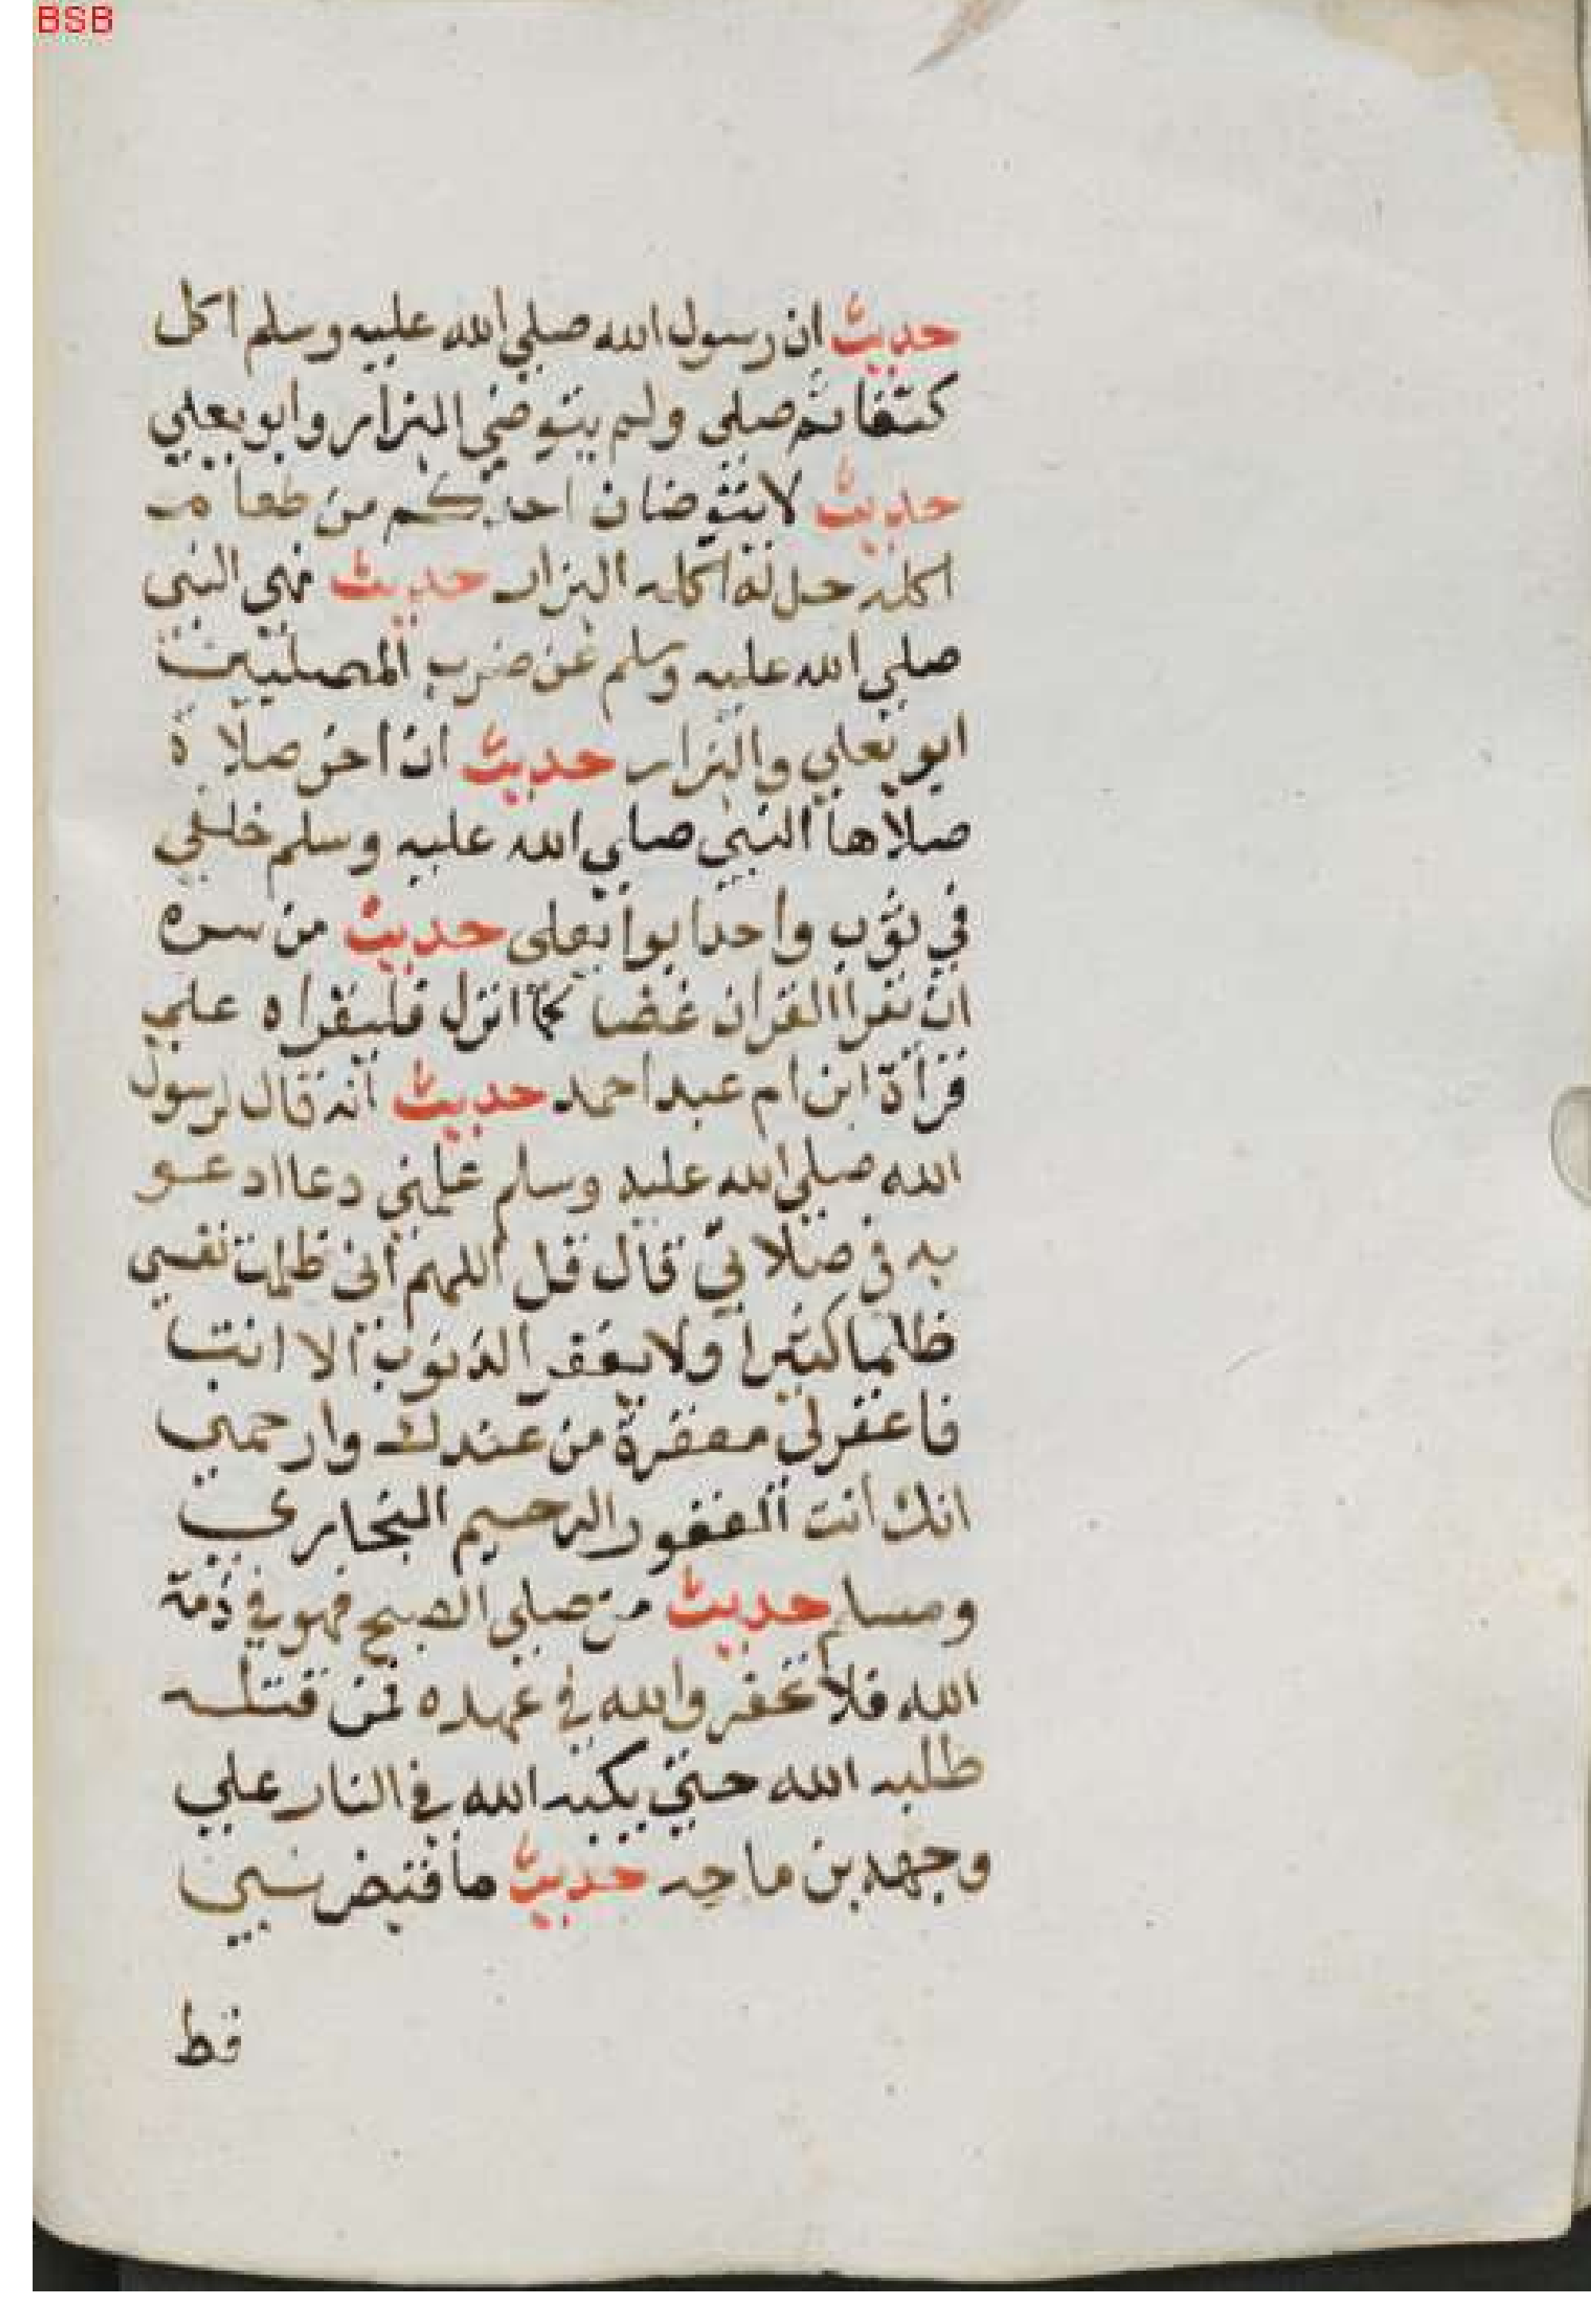 BSB
حديث ان رسول الله صلي الله عليه وسلم اكل
كتفا ثم صلي ولم يتوضي البزار وابو يعلي
حديث لا يتوضان احدكم من طعام
اكله حل له اكله البزار حديث نهي النبي
صلي الله عليه وسلم عن ضرب المصليين
ابو يعلي والبزار حديث ان اخر صلاة
صلاها النبي صلي الله عليه وسلم خلفي
في ثوب واحد ابوا يعلى حديث من سره
ان يقرا القران غضا كما انزل فليقراه علي
قراة ابن ام عبد احمد حديث انه قال لرسول
الله صلي الله عليه وسلم علمني دعا ادعو
به في صلاتي قال قل اللهم اني ظلمت نفسي
ظلما كثيرا ولا يغفر الذنوب الا انت
فاغفرلي مغفرة من عندك وارحمني
انك انت الغفور الرحيم البخاري
ومسلم حديث من صلي الصبح فهو في ذمة
الله فلا تخفروا الله في عهده فمن قتله
طلبه الله حتي يكبه الله في النار علي
وجهه بن ماجه حديث ما قبض نبي
قط